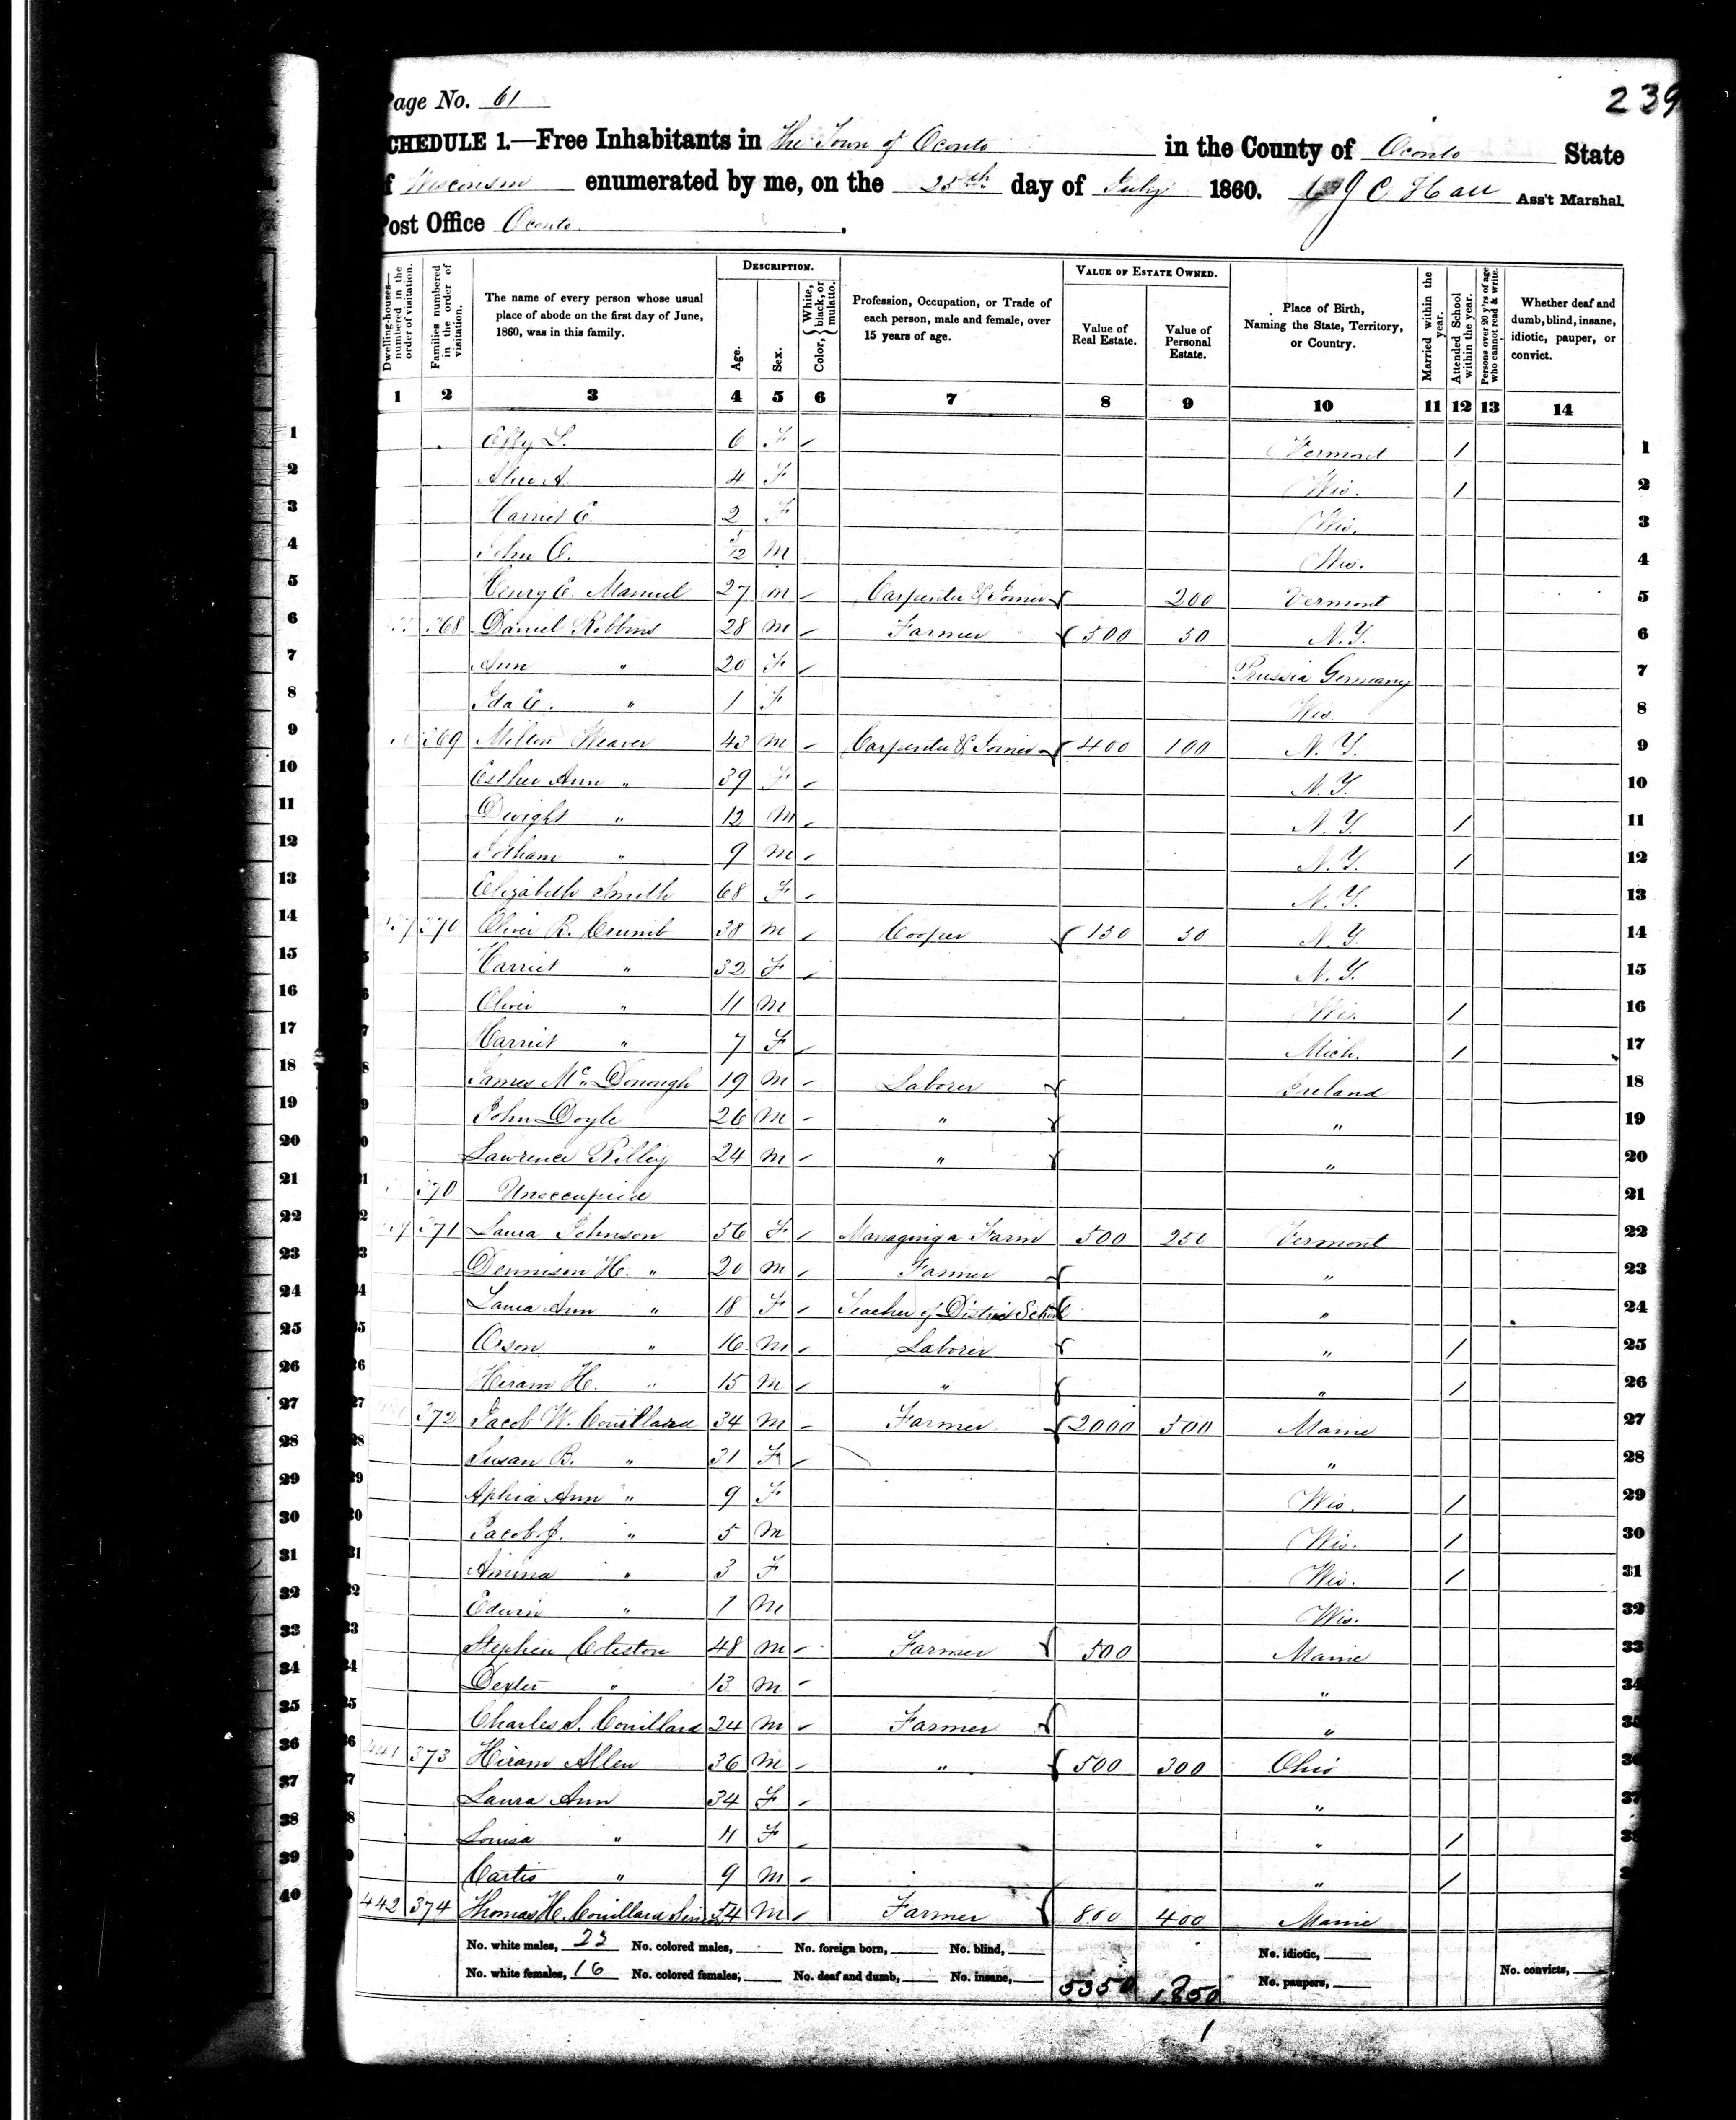 Page No. 61
239
SCHEDULE 1.—Free Inhabitants in The Town of Oconto in the County of Oconto State
of Wisconsin enumerated by me, on the 25th day of July 1860. Hall Ass't Marshal.
Post Office Oconto.
DESCRIPTION. VALUE OF ESTATE OWNED.
Dwelling-houses—numbered in the order of visitation. Families numbered in the order of visitation. The name of every person whose usual place of abode on the first day of June, 1860, was in this family. Age. Sex. Color, White, black, or mulatto. Profession, Occupation, or Trade of each person, male and female, over 15 years of age. Value of Real Estate. Value of Personal Estate. Place of Birth, Naming the State, Territory, or Country. Married within the year. Attended School within the year. Persons over 20 y'rs of age who cannot read & write. Whether deaf and dumb, blind, insane, idiotic, pauper, or convict.
1 2 3 4 5 6 7 8 9 10 11 12 13 14
1 Effy L. 6 F Vermont / 1
2 Alice A. 4 F Wis. / 2
3 Harriet E. 2 F Wis. 3
4 John O. 5/12 M Wis. 4
5 Henry E. Manuel 27 M Carpenter & Joiner 200 Vermont 5
6 368 Daniel Robbins 28 M Farmer 500 50 N.Y. 6
7 Ann " 20 F Prussia Germany 7
8 Ida E. " 1 F Wis. 8
9 369 Milton Weaver 43 M Carpenter & Joiner 400 100 N.Y. 9
10 Esther Ann " 39 F N.Y. 10
11 Dwight " 12 M N.Y. / 11
12 Jotham " 9 M N.Y. / 12
13 Elizabeth Smith 68 F N.Y. 13
14 370 Oliver B. Crumb 38 M Cooper 150 50 N.Y. 14
15 Harriet " 32 F N.Y. 15
16 Oliver " 11 M Wis. / 16
17 Harriet " 7 F Mich. / 17
18 James McDonough 19 M Laborer Ireland 18
19 John Doyle 26 M " " 19
20 Lawrence Rilley 24 M " " 20
21 370 Unoccupied 21
22 371 Laura Johnson 56 F Managing a Farm 500 250 Vermont 22
23 Dennison H. " 20 M Farmer " 23
24 Laura Ann " 18 F Teacher of District School " 24
25 Orson " 16 M Laborer " / 25
26 Hiram H. " 15 M " " / 26
27 372 Jacob W. Couillard 34 M Farmer 2000 500 Maine 27
28 Susan B. " 31 F " 28
29 Aphia Ann " 9 F Wis. / 29
30 Jacob J. " 5 M Wis. / 30
31 Amina " 3 F Wis. / 31
32 Edwin " 1 M Wis. 32
33 Stephen Coleston 48 M Farmer 500 Maine 33
34 Dexter " 13 M " 34
35 Charles S. Couillard 24 M Farmer " 35
36 441 373 Hiram Allen 36 M " 500 300 Ohio 36
37 Laura Ann 34 F " 37
38 Louisa " 11 F " / 38
39 Curtis " 9 M " /
40 442 374 Thomas H. Couillard Senior 54 M Farmer 800 400 Maine
No. white males, 23 No. colored males, No. foreign born, No. blind, No. idiotic,
No. white females, 16 No. colored females, No. deaf and dumb, No. insane, 5350 1850 No. paupers, No. convicts,
1